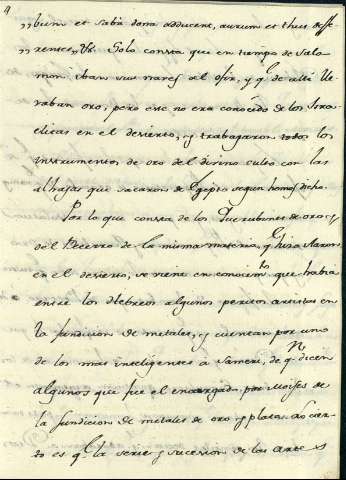 „bum et Saba dona adducent, aurum et thus defe-
„rentes, &c. Solo consta que en tiempo de Salo-
mon iban sus naves al Ofir, y q.e de alli lle-
vaban oro, pero este no era conocido de los Isrra-
elitas en el desierto, y trabajaron todos los
instrumentos de oro del divino culto con las
alhajas que sacaron de Egipto segun hemos dicho.
Por lo que consta de los Querubines de oro, y
del Becerro de la misma materia, q.e hizo Aaron
en el desierto, se viene en conocim.to que habia
entre los Hebreos algunos peritos artistas en
la fundicion de metales, y cuentan por uno
de los mas inteligentes à Sameri, de q.n dicen
algunos que fue el encargado por Moises de
la fundicion de metales de oro y plata. Lo cier-
to es q.e la serie y sucesion de las artes